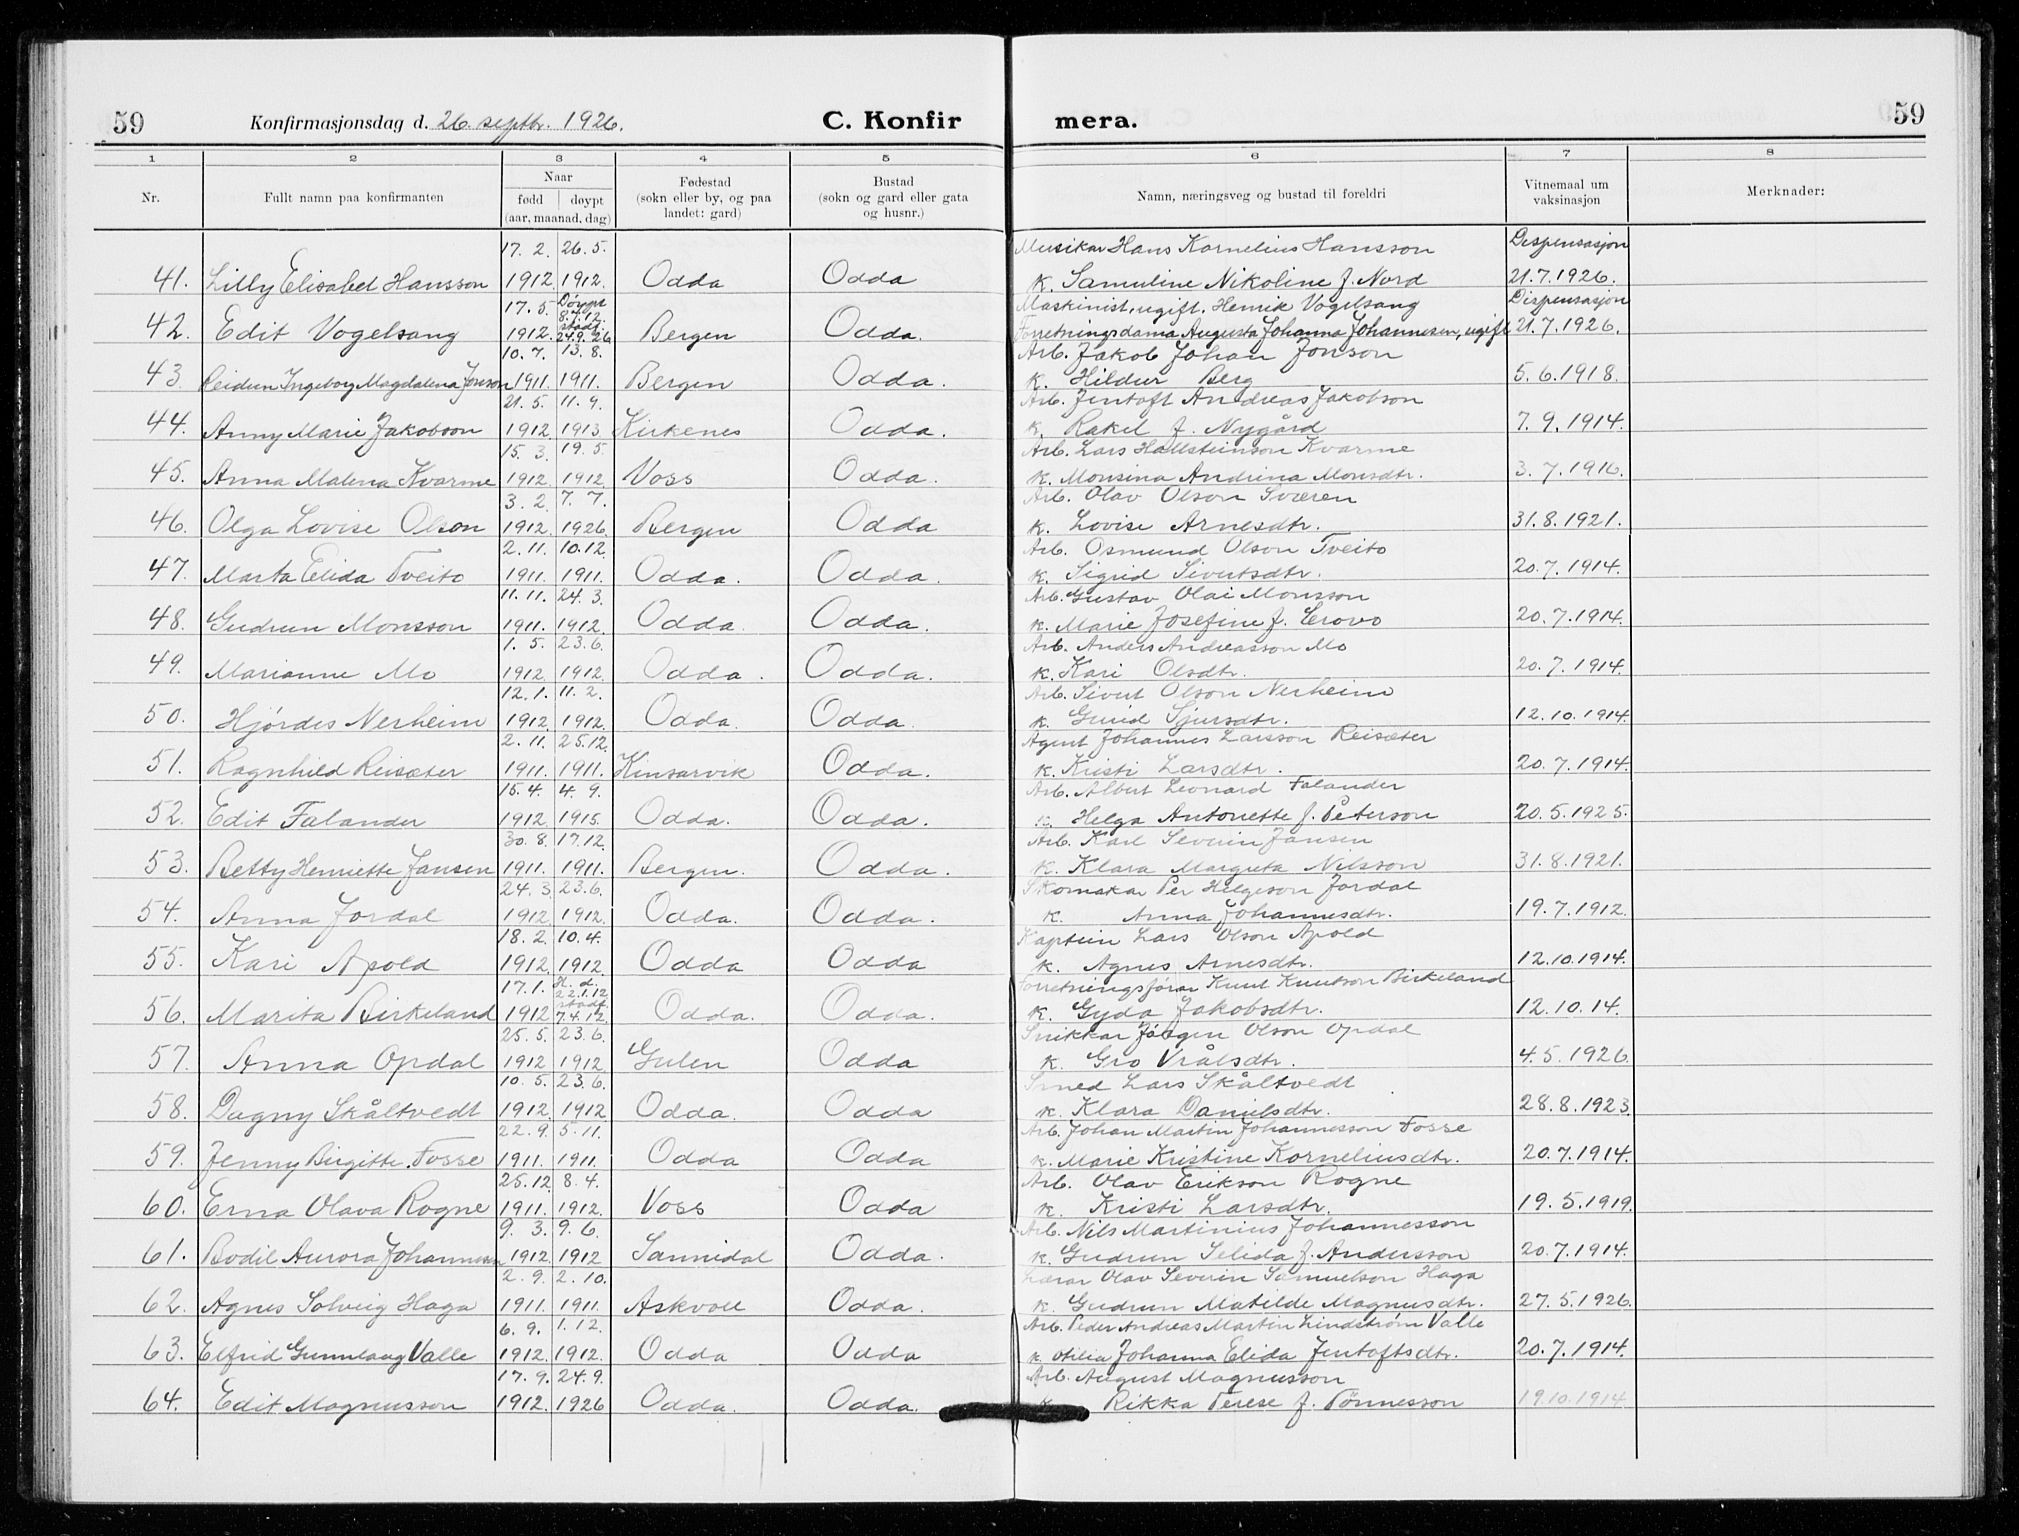 59 Konfirmasjonsdag d. 26. septbr. 1926. C. Konfirmera. 59
1 2 3 4 5 6 7 8
Nr. Fullt namn paa konfirmanten Naar fødd døypt (aar, maanad, dag) Fødestad (sokn eller by, og paa landet: gard) Bustad (sokn og gard eller gata og husnr.) Namn, næringsveg og bustad til foreldri Vitnemaal um vaksinasjon Merknader:
17. 2. 26. 5. Musikar Hans Kornelius Hansson Dispensasjon
41. Lilly Elisabet Hansson 1912. 1912. Odda Odda K. Samuline Nikoline f. Nord 21.7.1926.
17. 5. Døypt 8.7.12. Maskinist, ugift, Henrik Vogelsang Dispensasjon
42. Edit Vogelsang 1912. stadf. 24.9.26 Bergen Odda. Forretningsdama Augusta Johanna Johannesen, ugift 21.7.1926.
10. 7. 13. 8. Arb. Jakob Johan Jonson
43. Reidun Ingeborg Magdalena Jonson 1911. 1911. Bergen Odda. K. Hildur Berg 5.6.1918.
21. 5. 11. 9. Arb. Jentoft Andreas Jakobson
44. Anny Marie Jakobson 1912 1913 Kirkenes Odda. K. Rakel f. Nygård 7.9.1914.
15. 3. 19. 5. Arb. Lars Hallsteinson Kvarme
45. Anna Malena Kvarme 1912 1912 Voss Odda. K. Monsina Andrina Monsdtr. 3.7.1916.
3. 2. 7. 7. Arb. Olav Olson Sværen
46. Olga Lovise Olson 1912. 1926. Bergen Odda K. Lovise Arnesdtr. 31.8.1921.
2. 11. 10.12. Arb. Osmund Olson Tveito
47. Marta Elida Tveito 1911. 1911. Odda. Odda. K. Sigrid Sivertsdtr. 20.7.1914.
11. 11. 24. 3. Arb. Gustav Olai Monsson
48. Gudrun Monsson 1911. 1912. Odda Odda. K. Marie Josefine f. Erovo 20.7.1914.
1. 5. 23.6. Arb. Anders Andreasson Mo
49. Marianne Mo 1912. 1912. Odda. Odda. K. Kari Olsdtr. 20.7.1914.
12. 1. 11. 2. Arb. Sivert Olson Nerheim
50. Hjørdes Nerheim 1912. 1912. Odda. Odda. K. Gurid Sjursdtr. 12.10.1914.
2. 11. 25.12. Agent Johannes Larsson Reisæter
51. Ragnhild Reisæter 1911. 1911. Kinsarvik Odda. K. Kristi Larsdtr. 20.7.1914.
15. 4. 4. 9. Arb. Albert Leonard Falander
52. Edit Falander 1912. 1915. Odda. Odda. K. Helga Antonette f. Peterson 20.5.1925.
30. 8. 17.12. Arb. Karl Severin Jansen
53. Betty Henriette Jansen 1911. 1911. Bergen. Odda. K. Klara Margreta Nilsson 31.8.1921.
24. 3. 23.6. Skomakar Per Helgeson Jordal
54. Anna Jordal 1912 1912. Odda. Odda. K. Anna Johannesdtr. 19.7.1912.
18. 2. 10. 4. Kaptein Lars Olson Apold
55. Kari Apold 1912. 1912. Odda Odda K. Agnes Arnesdtr. 12.10.1914.
17. 1. H. d. 22.1.12 Forretningsførar Knut Knutson Birkeland
56. Marita Birkeland 1912 stadf. 7.4.12. Odda. Odda. K. Gyda Jakobsdtr. 12.10.14.
25. 5. 23.6. Snikkar Jørgen Olson Opdal
57. Anna Opdal 1912 1912 Gulen Odda K. Gro Vrålsdtr. 4.5.1926.
10. 5. 23.6. Smed Lars Skåltvedt
58. Dagny Skåltvedt 1912. 1912 Odda. Odda K. Klara Danielsdtr. 28.8.1923.
22. 9. 5. 11. Arb. Johan Martin Johannesson Fosse
59. Jenny Birgitte Fosse 1911. 1911. Odda Odda K. Marie Kristine Korneliusdtr. 20.7.1914.
25.12. 8. 4. Arb. Olav Erikson Rogne
60. Erna Olava Rogne 1911. 1912. Voss Odda K. Kristi Larsdtr. 19.5.1919.
9. 3. 9. 6. Arb. Nils Martinius Johannesson
61. Bodil Aurora Johannessen 1912. 1912 Sannidal Odda. K. Gudrun Selida f. Andersson 20.7.1914.
2. 9. 2. 10. Lærar Olav Severin Samuelson Haga
62. Agnes Solveig Haga 1911. 1911. Askvoll Odda. K. Gudrun Matilde Magnusdtr. 27.5.1926.
6. 9. 1. 12. Arb. Peder Andreas Martin Lindstrøm Valle
63. Elfrid Gunnlaug Valle 1912. 1912. Odda Odda K. Otilia Johanna Elida Jentoftsdtr. 20.7.1914.
17. 9. 24. 9. Arb. August Magnusson
64. Edit Magnusson 1912. 1926 Odda. Odda. K. Rikka Terese f. Tønnesson 19.10.1914.